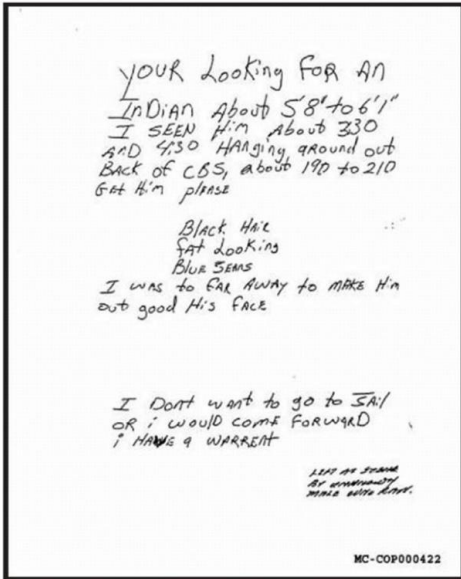 YOUR Looking FOR AN
INDIAN About 5'8" to 6'1"
I SEEN Him About 330
AND 4:30 HANging around out
BACK of CBS, about 190 to 210
GEt Him plEASE
BlAck HAiR
fAt Looking
BluE JEANS
I wAS to fAR AwAy to MAKE Him
out good His fACE
I Dont wAnt to go to JAil
OR i would COME FORWARD
i HAvE a WARRENt
LEFT AT
BY UNKNOWN
MALE WHO RAN.
MC-COP000422